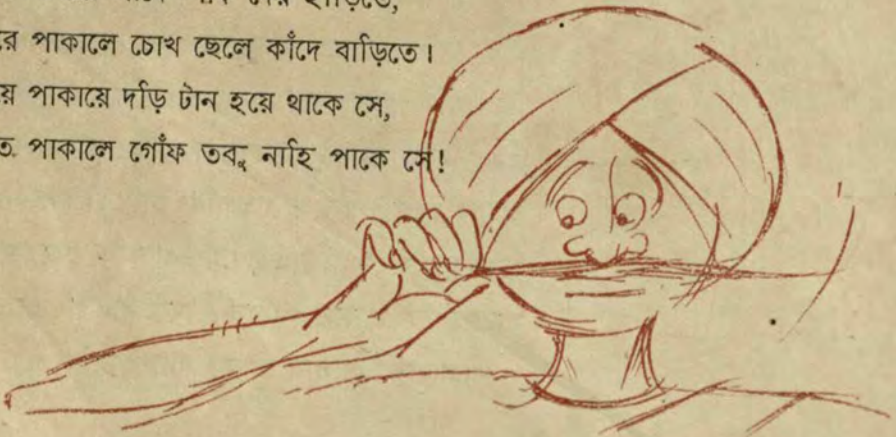 হাঁড়িতে,
রে পাকালে চোখ ছেলে কাঁদে বাড়িতে।
য় পাকায়ে দড়ি টান হয়ে থাকে সে,
ত পাকালে গোঁফ তবু নাহি পাকে সে!